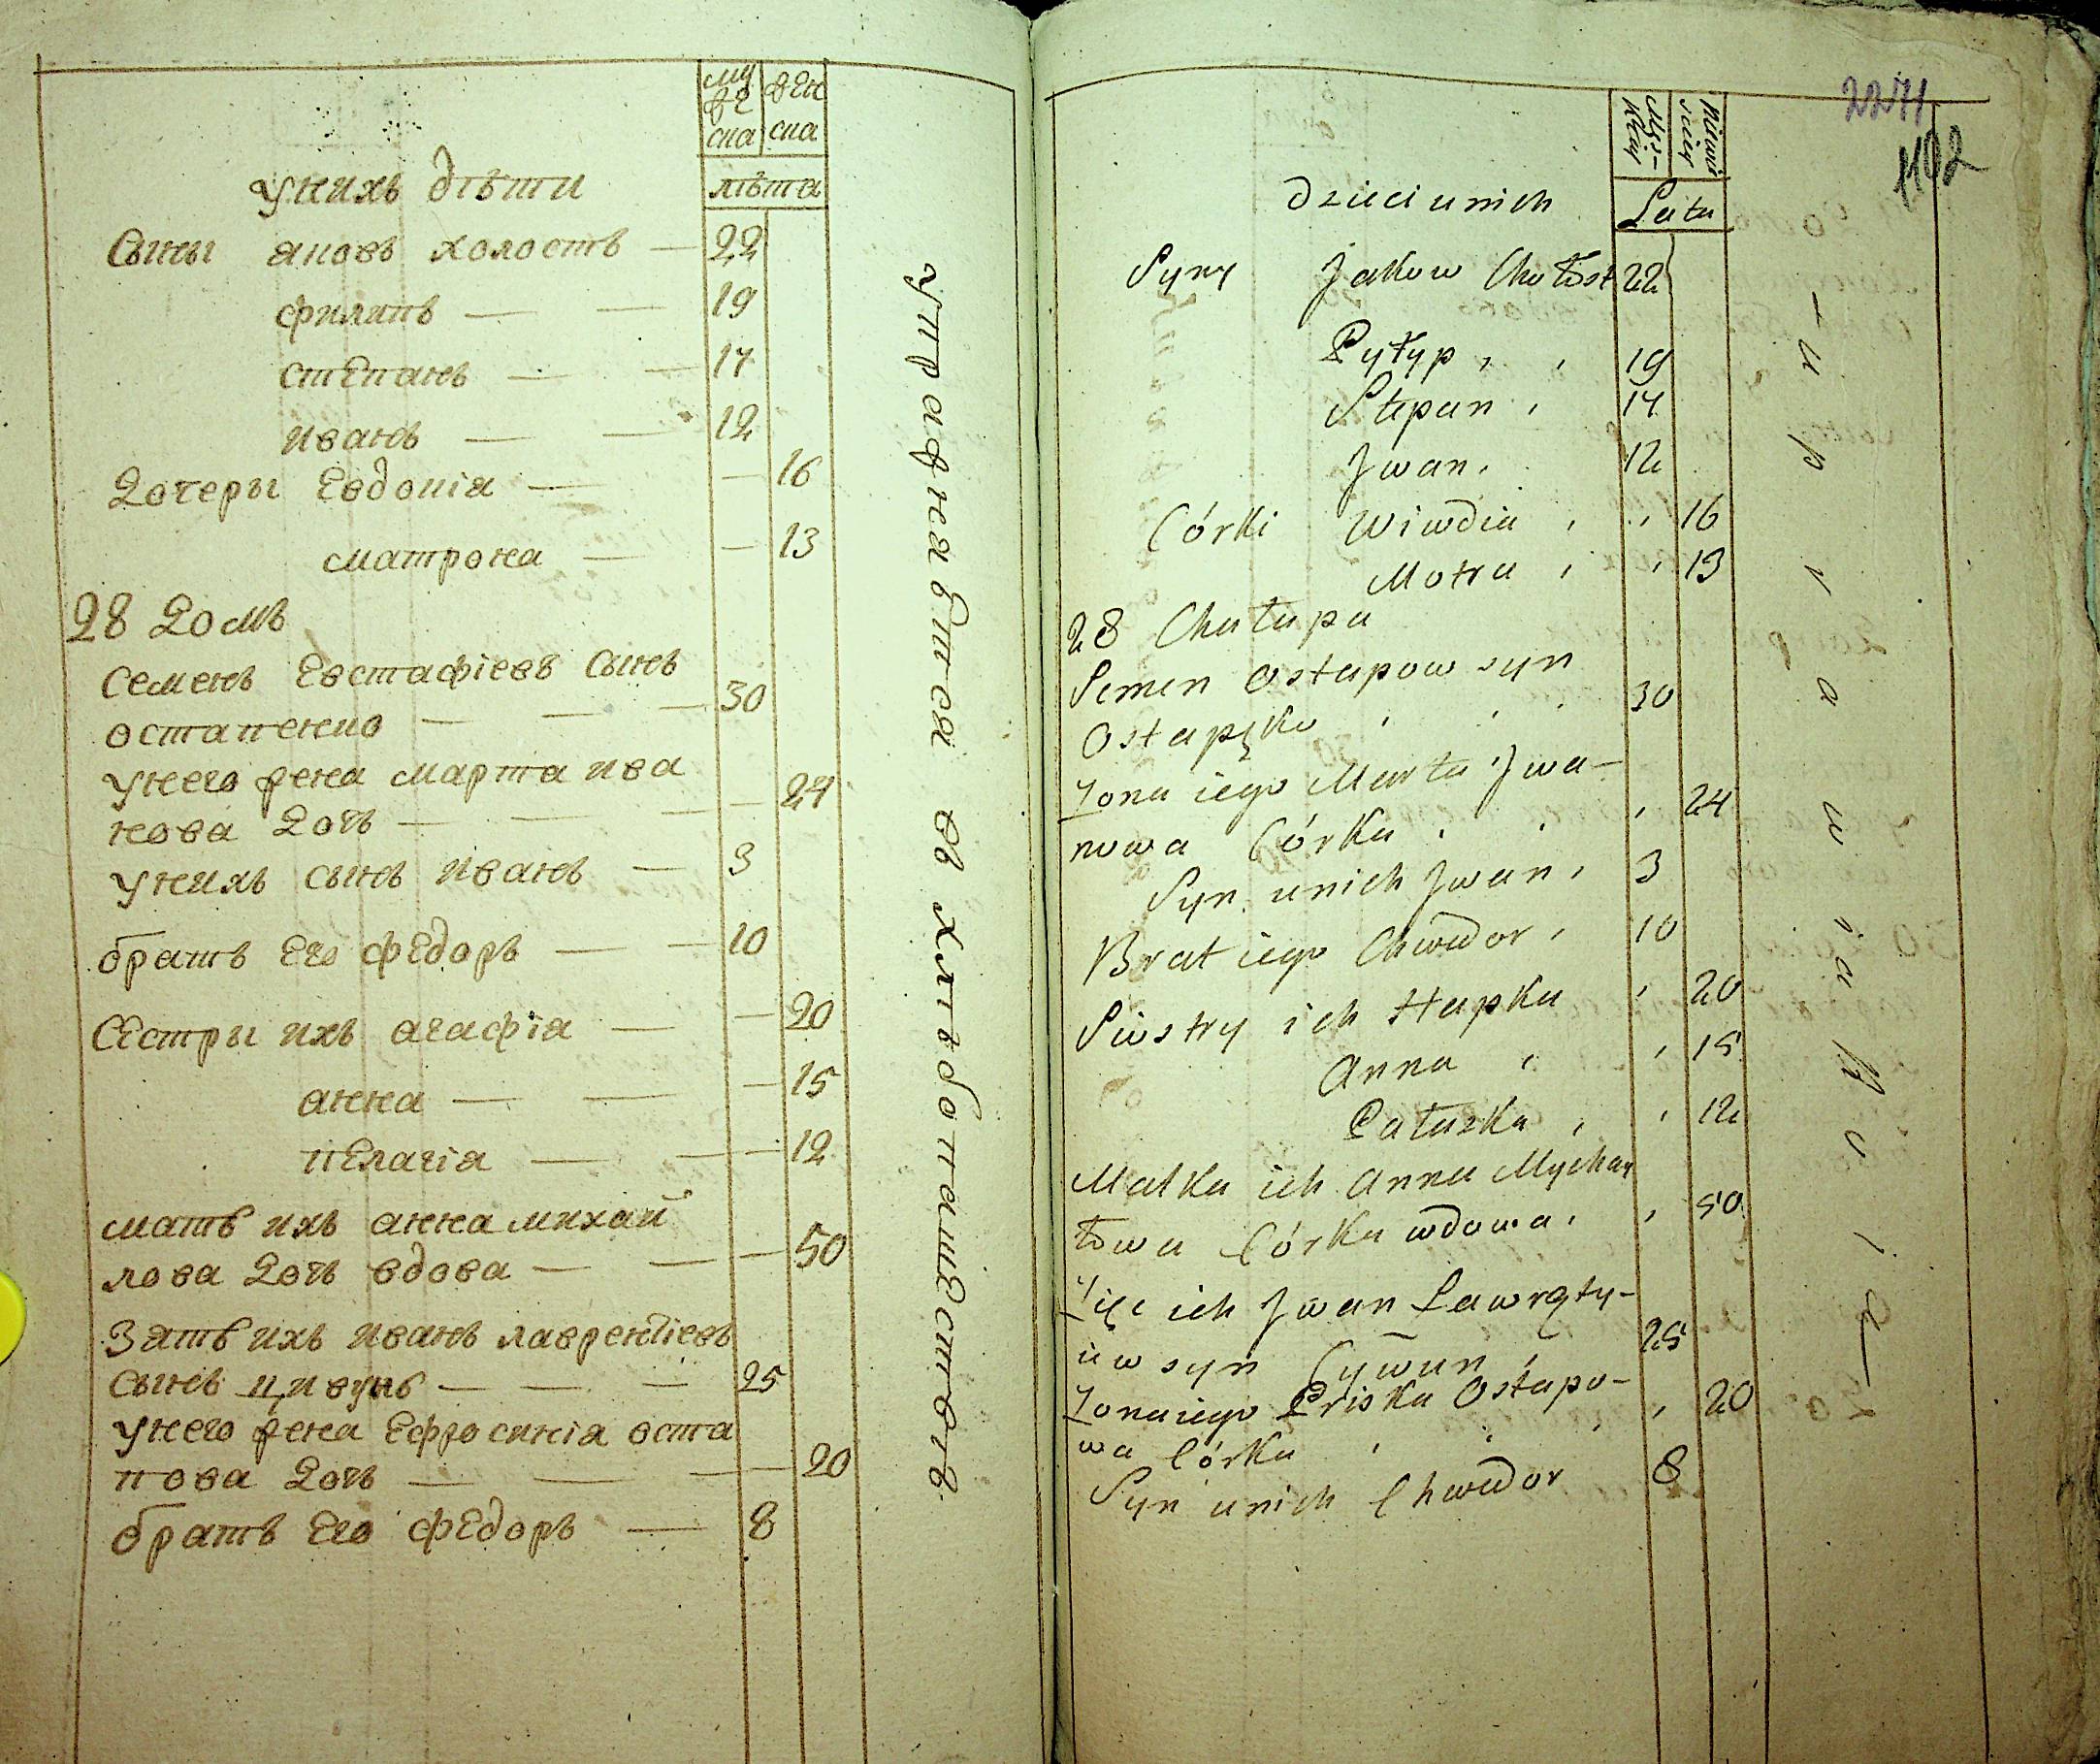 муже
ска
жен
ска
лѣта
у нихъ дѣти
Сыны яковъ холостъ — 22
филипъ — — 19
степанъ — — 17
иванъ — — 12
дочеры Евдокіа — — 16
матрона — — 13
28 домъ
Семенъ Евстафіевъ сынъ
остапенко — — — 30
у него жена марта ива
нова дочь — — — — 24
у нихъ сынъ иванъ — 3
братъ его федоръ — — 10
Сестры ихъ агафіа — — 20
анна — — — 15
пелагіа — — — 12
мать ихъ анна михай
лова дочь вдова — — — 50
Зять ихъ иванъ лаврентіевъ
сынъ цивунъ — — — 25
у него жена Ефросиніа оста
пова дочь — — — — 20
братъ его федоръ — 8
упражняется въ хлѣбопашествѣ
2271
1102
Lata
Dzieci u nich
Syny Jakow Chołost 22
Pyłyp , , 19
Stepan , 17
Jwan , 12
Córki Wiwdia , , 16
Motra , , 13
28 Chałupa
Semen Ostapow syn
Ostapęko , , , 30
Żona iego Marta Jwa-
nowa Córka , , , 24
Syn u nich Jwan , 3
Brat iego Chwedor , 10
Siostry ich Hapka , 20
Anna , , 15
Pałażka , , 12
Matka ich Anna Mychay
łowa Córka wdowa , , 50
Zięć ich Jwan Ławręty-
iew syn Cywun , 25
Żona iego Priska Ostapo- , 20
wa Córka , , ,
Syn u nich Chwedor 8